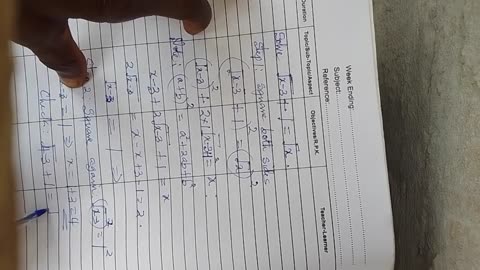 Week Ending:
Subject:
Reference:
Duration
Topic/Sub-Topic/Aspect
Objectives R.P.K.
Teacher-Learner
Solve √x-3 + 1 = √x.
Step 1: Square both sides
(√x-3 + 1)² = (√x)²
(√x-3)² + 2·1√x-3 + 1² = x.
Note: (a+b)² = a²+2ab+b²
x-3+2√x-3 + 1 = x
2√x-3 = x-x+3-1 = 2.
√x-3 = 1 ⇒
2 Square again (√x-3)² = 1²
= 1 ⇒ x = 1+3 = 4
Check: √4-3 + 1 =